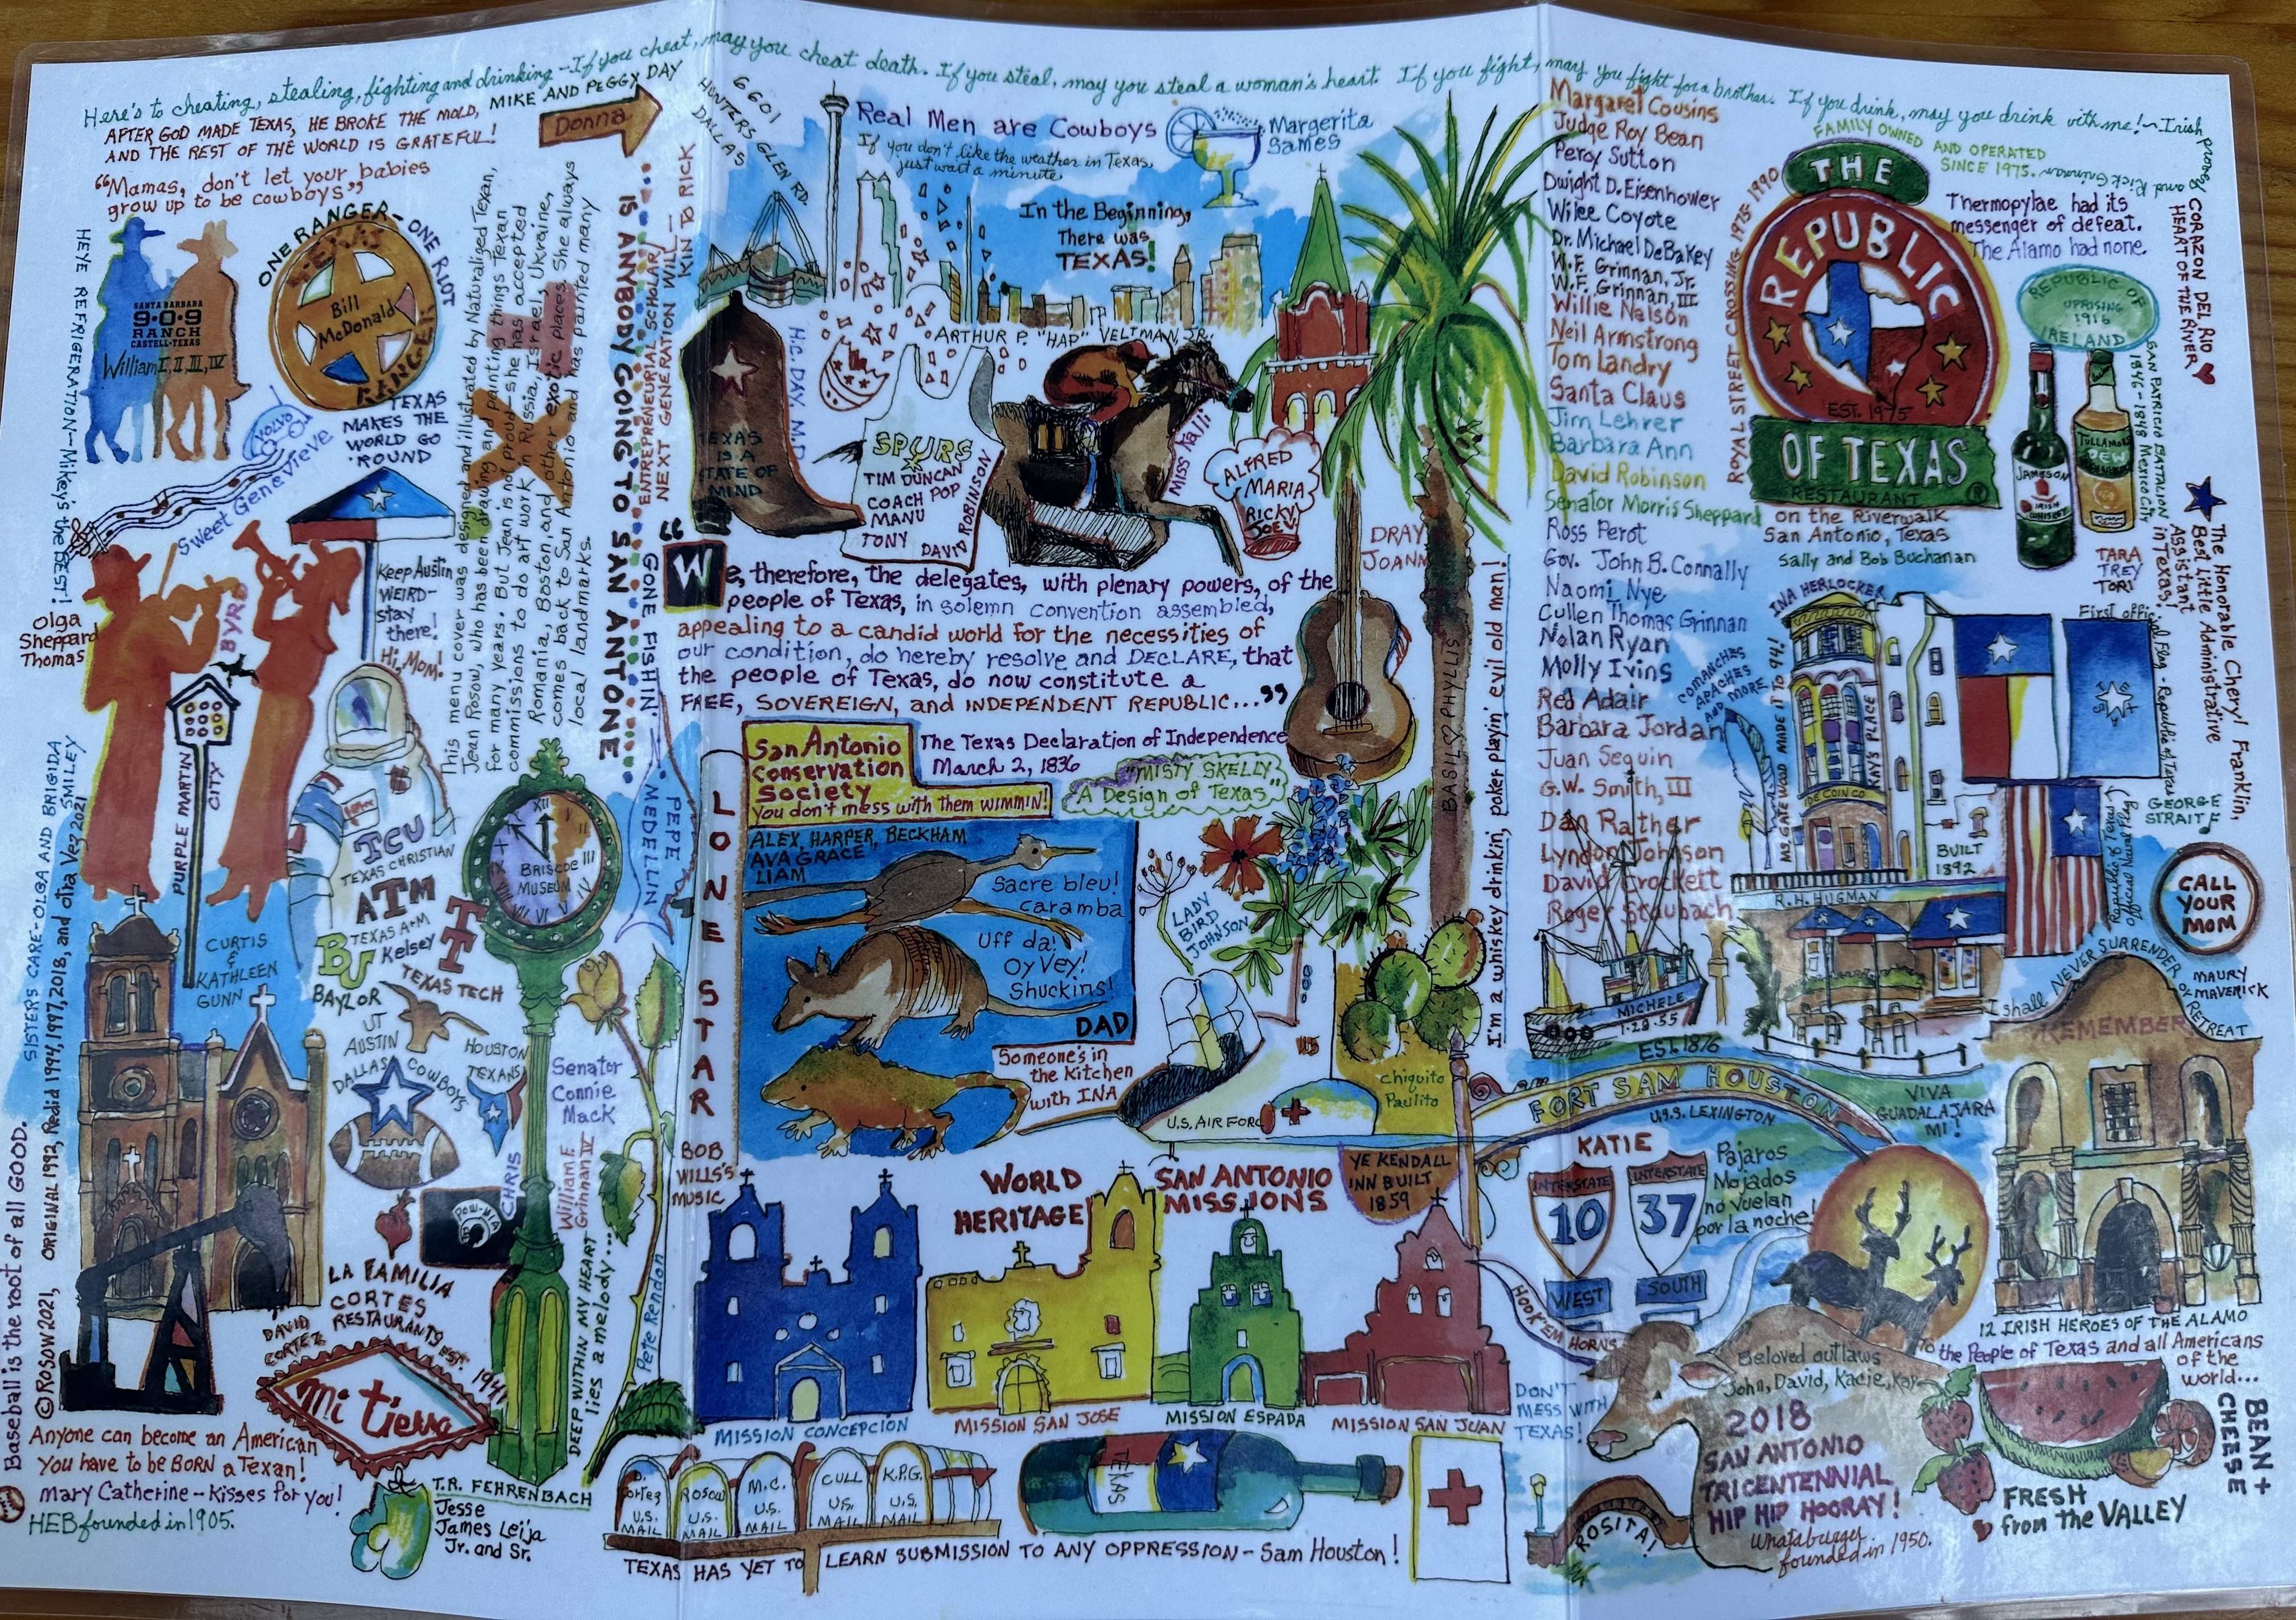 Here's to cheating, stealing, fighting and drinking - If you cheat, may you cheat death. If you steal, may you steal a woman's heart. If you fight, may you fight for a brother. If you drink, may you drink with me! ~ Irish proverb and Rick Grinnan
AFTER GOD MADE TEXAS, HE BROKE THE MOLD,
AND THE REST OF THE WORLD IS GRATEFUL!
MIKE AND PEGGY DAY
Donna
6601
HUNTERS GLEN RD.
DALLAS
"Mamas, don't let your babies
grow up to be cowboys"
HEYE REFRIGERATION—Mikey's the BEST!
SANTA BARBARA
9·0·9
RANCH
CASTELL-TEXAS
William I, II, III, IV
ONE RANGER - ONE RIOT
TEXAS
Bill
McDonald
RANGER
VOLVO
TEXAS
MAKES THE
WORLD GO
'ROUND
Sweet Genevieve
This menu cover was designed and illustrated by Naturalized Texan,
Jean Rosow, who has been drawing and painting things Texan
for many years. But Jean is not proud - she has accepted
commissions to do art work in Russia, Israel, Ukraine,
Romania, Boston, and other exotic places. She always
comes back to San Antonio and has painted many
local landmarks.
IS ANYBODY GOING TO SAN ANTONE
ENTREPRENEURIAL SCHOLAR
NEXT GENERATION WILL—
KIN TO RICK
GONE FISHIN'
PEPE
MEDELLIN
Olga
Sheppard
Thomas
BYRD
Keep Austin
WEIRD-
stay
there!
Hi, Mom!
PURPLE MARTIN
CITY
SISTERS CARE-OLGA AND BRIGIDA
SMILEY
©ROSOW 2021, ORIGINAL 1992, Redid 1994, 1997, 2018, and otra Vez 2021
Baseball is the root of all GOOD.
TCU
TEXAS CHRISTIAN
ATM
TEXAS A+M
Kelsey
BU
BAYLOR
TEXAS TECH
UT
AUSTIN
DALLAS COWBOYS
HOUSTON
TEXANS
XII
III
BRISCOE
MUSEUM
CURTIS
&
KATHLEEN
GUNN
Senator
Connie
Mack
William F.
Grinnan IV
CHRIS
POW-MIA
LA FAMILIA
CORTES
RESTAURANTS EST
1941
DAVID
CORTEZ
mi tierra
DEEP WITHIN MY HEART
lies a melody...
Pete Rendon
Anyone can become an American
You have to be BORN a Texan!
Mary Catherine - Kisses for you!
HEB founded in 1905.
T.R. FEHRENBACH
Jesse
James Leija
Jr. and Sr.
Real Men are Cowboys
If you don't like the weather in Texas,
just wait a minute
Margerita
Sames
In the Beginning,
There was
TEXAS!
ARTHUR P. "HAP" VELTMAN, JR.
H.C. DAY, M.D.
TEXAS
IS A
STATE OF
MIND
SPURS
TIM DUNCAN
COACH POP
MANU
TONY
DAVID ROBINSON
Miss Talli
ALFRED
MARIA
RICKY
JOE
DRAY
JOANN
"We, therefore, the delegates, with plenary powers, of the
people of Texas, in solemn convention assembled,
appealing to a candid world for the necessities of
our condition, do hereby resolve and DECLARE, that
the people of Texas, do now constitute a
FREE, SOVEREIGN, and INDEPENDENT REPUBLIC..."
The Texas Declaration of Independence
March 2, 1836
San Antonio
Conservation
Society
You don't mess with them WIMMIN!
"MISTY SKELLY
A Design of Texas"
LONE STAR
ALEX, HARPER, BECKHAM
AVA GRACE
LIAM
Sacre bleu!
caramba
Uff da!
Oy Vey!
Shuckins!
DAD
Someone's in
the Kitchen
with INA
LADY
BIRD
JOHNSON
BASIL PHYLLIS
I'm a whiskey drinkin', poker playin' evil old man!
U.S. AIR FORCE
Chiquito
Paulito
BOB
WILLS'S
MUSIC
WORLD
HERITAGE
SAN ANTONIO
MISSIONS
YE KENDALL
INN BUILT
1859
MISSION CONCEPCION
MISSION SAN JOSE
MISSION ESPADA
MISSION SAN JUAN
D. Cortez
U.S.
MAIL
ROSOW
U.S.
MAIL
M.C.
U.S.
MAIL
CULL
U.S.
MAIL
K.P.G.
U.S.
MAIL
TEXAS
TEXAS HAS YET TO LEARN SUBMISSION TO ANY OPPRESSION - Sam Houston!
Margaret Cousins
Judge Roy Bean
Percy Sutton
Dwight D. Eisenhower
Wilee Coyote
Dr. Michael DeBakey
W.F. Grinnan, Jr.
W.F. Grinnan, III
Willie Nelson
Neil Armstrong
Tom Landry
Santa Claus
Jim Lehrer
Barbara Ann
David Robinson
Senator Morris Sheppard
Ross Perot
Gov. John B. Connally
Naomi Nye
Cullen Thomas Grinnan
Nolan Ryan
Molly Ivins
Red Adair
Barbara Jordan
Juan Seguin
G.W. Smith, III
Dan Rather
Lyndon Johnson
David Crockett
Roger Staubach
ROYAL STREET CROSSING 1975-1990
FAMILY OWNED AND OPERATED
SINCE 1975.
THE
REPUBLIC
EST. 1975
OF TEXAS
RESTAURANT ®
on the Riverwalk
San Antonio, Texas
Sally and Bob Buchanan
Thermopylae had its
messenger of defeat.
The Alamo had none.
REPUBLIC OF
UPRISING
1916
IRELAND
JAMESON
IRISH
WHISKEY
TULLAMORE
DEW
SAN PATRICIO BATTALION
1846-1848 Mexico City
CORAZON DEL RIO
HEART OF THE RIVER
TARA
TREY
TORI
The Honorable Cheryl Franklin,
Best Little Administrative
Assistant
in Texas!
INA HERLOCKER
COMANCHES
APACHES
AND MORE
MS. GATEWOOD MADE IT TO 94!
KAY'S PLACE
BUILT
1892
R.H. HUGMAN
First official Flag - Republic of Texas
Republic of Texas
official Naval Flag
GEORGE
STRAIT
CALL
YOUR
MOM
MAURY
MAVERICK
I shall NEVER SURRENDER or RETREAT
REMEMBER
MICHELE
1-28-55
EST. 1876
FORT SAM HOUSTON
U.S.S. LEXINGTON
VIVA
GUADALAJARA
MI!
KATIE
INTERSTATE
10
WEST
INTERSTATE
37
SOUTH
Pajaros
Mojados
no vuelan
por la noche!
HOOK 'EM HORNS
12 IRISH HEROES OF THE ALAMO
To the People of Texas and all Americans
of the
world...
DON'T
MESS WITH
TEXAS!
Beloved outlaws
John, David, Kacie, Kay
2018
SAN ANTONIO
TRICENTENNIAL
HIP HIP HOORAY!
Whataburger
founded in 1950.
ROSITA!
FRESH
from the VALLEY
BEAN +
CHEESE